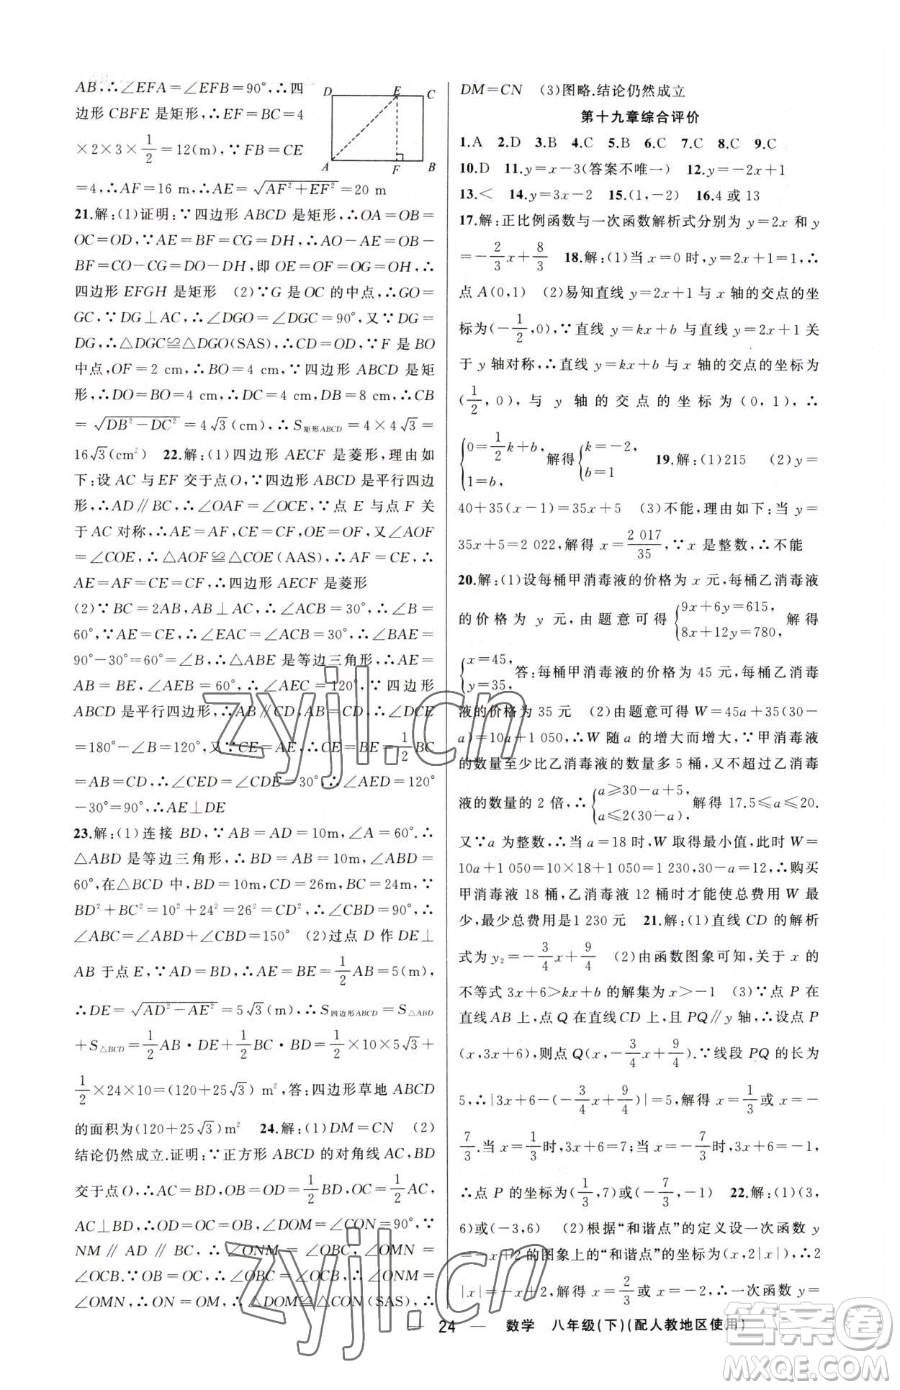 AB,∴∠EFA=∠EFB=90°,∴四
边形 CBFE 是矩形,∴EF=BC=4
×2×3×1/2=12(m).∵FB=CE
=4,∴AF=16 m,∴AE=√(AF²+EF²)=20 m
D E C
A F B
21.解:(1)证明:∵四边形 ABCD 是矩形,∴OA=OB=
OC=OD,∵AE=BF=CG=DH,∴AO-AE=OB-
BF=CO-CG=DO-DH,即 OE=OF=OG=OH,∴
四边形 EFGH 是矩形 (2)∵G 是 OC 的中点,∴GO=
GC,∵DG⊥AC,∴∠DGO=∠DGC=90°,又∵DG=
DG,∴△DGC≌△DGO(SAS),∴CD=OD.∵F 是 BO
中点,OF=2 cm,∴BO=4 cm,∵四边形 ABCD 是矩
形,∴DO=BO=4 cm,∴DC=4 cm,DB=8 cm,∴CB
=√(DB²-DC²)=4√3(cm),∴S矩形ABCD=4×4√3=
16√3(cm²) 22.解:(1)四边形 AECF 是菱形,理由如
下:设 AC 与 EF 交于点 O,∵四边形 ABCD 是平行四边
形,∴AD∥BC,∴∠OAF=∠OCE,∵点 E 与点 F 关
于 AC 对称,∴AE=AF,CE=CF,OE=OF,又∠AOF
=∠COE,∴△AOF≌△COE(AAS),∴AF=CE,∴
AE=AF=CE=CF,∴四边形 AECF 是菱形
(2)∵BC=2AB,AB⊥AC,∴∠ACB=30°,∴∠B=
60°,∵AE=CE,∴∠EAC=∠ACB=30°,∴∠BAE=
90°-30°=60°=∠B,∴△ABE 是等边三角形,∴AE=
AB=BE,∠AEB=60°,∴∠AEC=120°,∵四边形
ABCD 是平行四边形,∴AB∥CD,AB=CD,∴∠DCE
=180°-∠B=120°,又∵CE=AE,∴CE=BE=1/2BC
=AB=CD,∴∠CED=∠CDE=30°,∴∠AED=120°
-30°=90°,∴AE⊥DE
23.解:(1)连接 BD,∵AB=AD=10m,∠A=60°.∴
△ABD 是等边三角形,∴BD=AB=10m,∠ABD=60°,
在△BCD 中,BD=10m,CD=26m,BC=24m,∵
BD²+BC²=10²+24²=26²=CD²,∴∠CBD=90°,∴
∠ABC=∠ABD+∠CBD=150° (2)过点 D 作 DE⊥
AB 于点 E,∵AD=BD,∴AE=BE=1/2AB=5(m),
∴DE=√(AD²-AE²)=5√3(m),∴S四边形ABCD=S△ABD
+S△BCD=1/2AB·DE+1/2BC·BD=1/2×10×5√3+
1/2×24×10=(120+25√3)m²,答:四边形草地 ABCD
的面积为(120+25√3)m² 24.解:(1)DM=CN (2)
结论仍然成立.证明:∵正方形 ABCD 的对角线 AC,BD
交于点 O,∴AC=BD,OA=OC=1/2AC,OB=OD=
1/2BD,∴OC=OD,∵AC⊥BD,∴∠DOM=∠CON=90°,∵
NM∥AD∥BC,∴∠ONM=∠OBC,∠OMN=
∠OCB.∵OB=OC,∴∠OBC=∠OCB,∴∠ONM=
∠OMN,∴OM=ON,∴△DOM≌△CON(SAS),∴
DM=CN (3)图略.结论仍然成立
第十九章综合评价
1.A 2.D 3.B 4.C 5.B 6.C 7.C 8.C 9.C
10.D 11.y=x-3(答案不唯一) 12.y=-2x+1
13.< 14.y=3x-2 15.(1,-2) 16.4 或 13
17.解:正比例函数与一次函数解析式分别为 y=2x 和 y
=-2/3x+8/3 18.解:(1)当 x=0 时,y=2x+1=1,∴
点 A(0,1) (2)易知直线 y=2x+1 与 x 轴的交点的坐
标为(-1/2,0),∵直线 y=kx+b 与直线 y=2x+1 关
于 y 轴对称,∴直线 y=kx+b 与 x 轴的交点的坐标为
(1/2,0),与 y 轴的交点的坐标为(0,1),∴
{0=1/2k+b, 1=b, 解得{k=-2, b=1 19.解:(1)215 (2)y=
40+35(x-1)=35x+5 (3)不能,理由如下:当 y=
35x+5=2 022,解得 x=2 017/35,∵x 是整数,∴不能
20.解:(1)设每桶甲消毒液的价格为 x 元,每桶乙消毒液
的价格为 y 元,由题意可得{9x+6y=615, 8x+12y=780, 解得
{x=45, y=35, 答:每桶甲消毒液的价格为 45 元,每桶乙消毒
液的价格为 35 元 (2)由题意可得 W=45a+35(30-
a)=10a+1 050,∴W 随 a 的增大而增大,∵甲消毒液
的数量至少比乙消毒液的数量多 5 桶,又不超过乙消毒
液的数量的 2 倍,∴{a≥30-a+5, a≤2(30-a), 解得 17.5≤a≤20.
又∵a 为整数,∴当 a=18 时,W 取得最小值,此时 W=
10a+1 050=10×18+1 050=1 230,30-a=12,∴购买
甲消毒液 18 桶,乙消毒液 12 桶时才能使总费用 W 最
少,最少总费用是 1 230 元 21.解:(1)直线 CD 的解析
式为 y₂=-3/4x+9/4 (2)由函数图象可知,关于 x 的
不等式 3x+6>kx+b 的解集为 x>-1 (3)∵点 P 在
直线 AB 上,点 Q 在直线 CD 上,且 PQ∥y 轴,∴设点 P
(x,3x+6),则点 Q(x,-3/4x+9/4).∵线段 PQ 的长为
5,∴|3x+6-(-3/4x+9/4)|=5,解得 x=1/3或 x=-
7/3.当 x=1/3时,3x+6=7;当 x=-7/3时,3x+6=-1,
∴点 P 的坐标为(1/3,7)或(-7/3,-1) 22.解:(1)(3,
6)或(-3,6) (2)根据“和谐点”的定义设一次函数 y
=-x+2 的图象上的“和谐点”的坐标为(x,2|x|),∴2
|x|=-x+2,解得 x=2/3或 x=-2,∴一次函数 y=
24 — 数学 八年级(下)(配人教地区使用)
zyjl.cn
zyjl.cn
答案圈
MXQE.COM